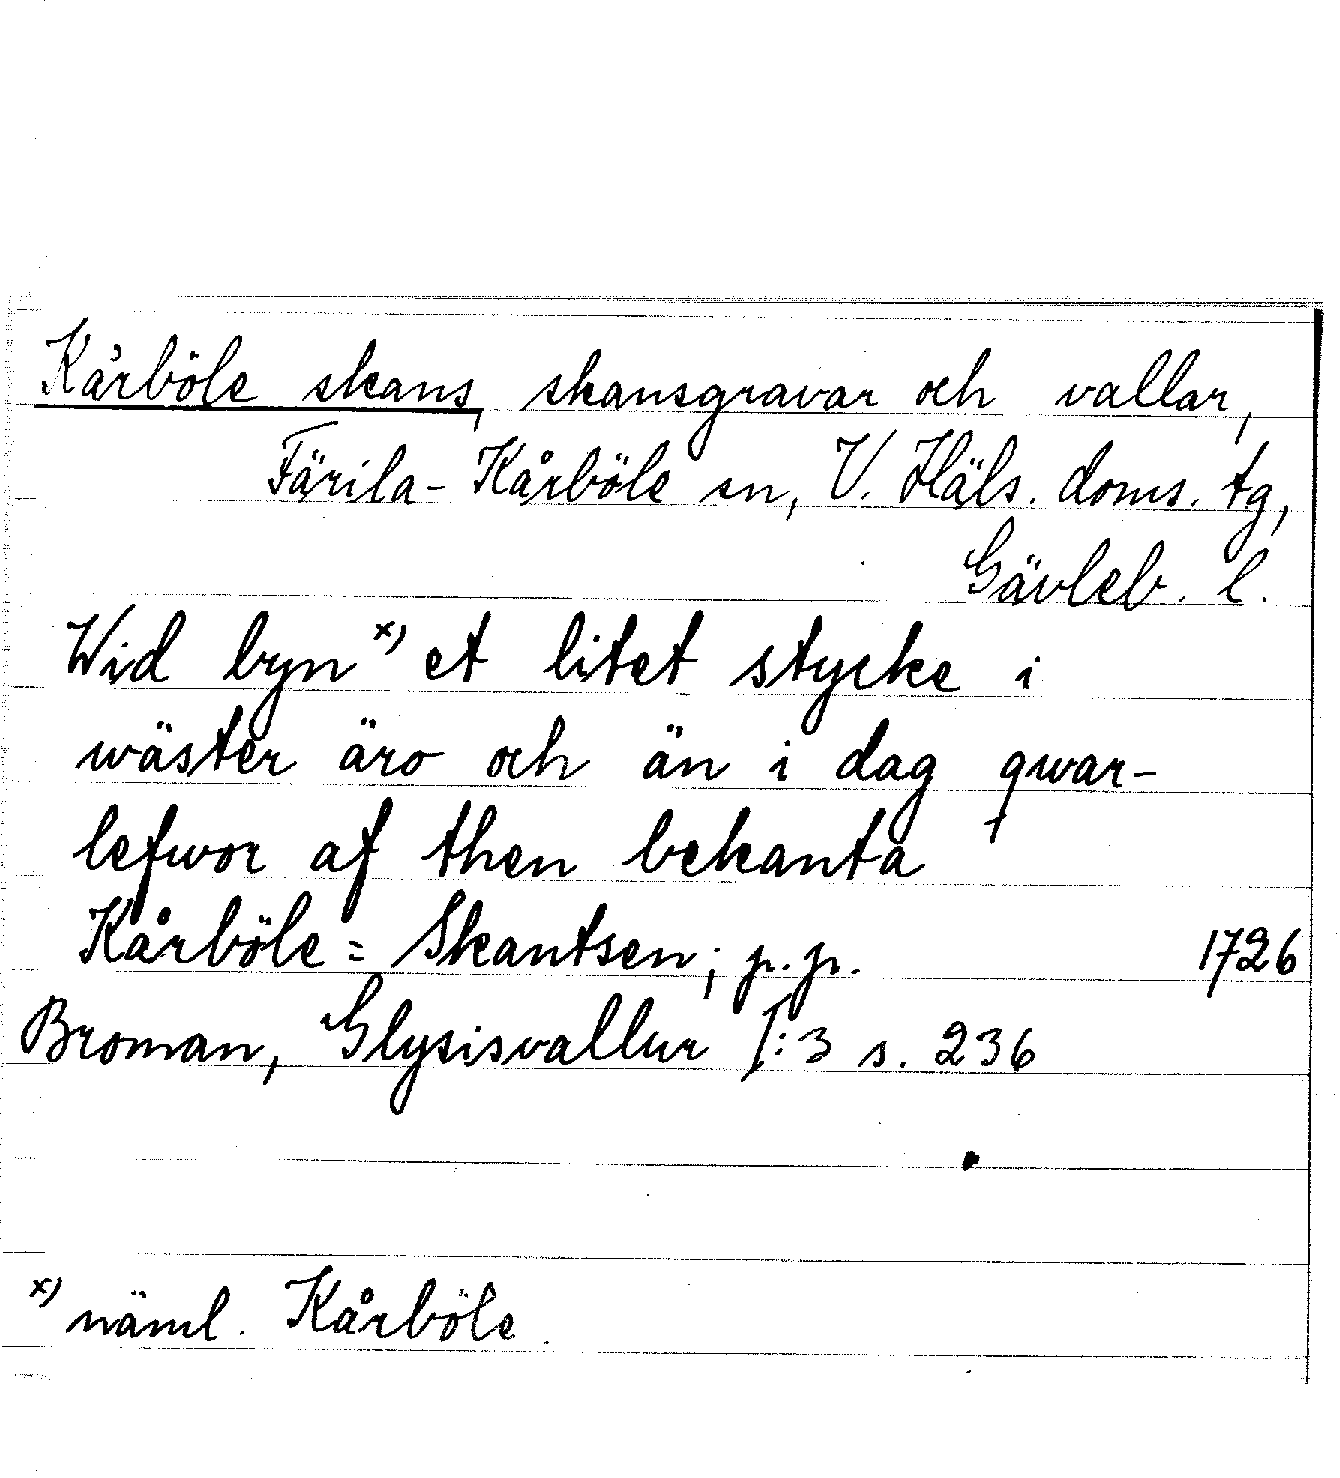 Kårböle skans, skansgravar och vallar,
Färila-Kårböle sn, V. Häls. doms. tg,
Gävleb. l.
Wid byn x) et litet stycke i
wäster äro och än i dag qwar-
lefwor af then bekanta
Kårböle = Skantsen; p.p. 1726
Broman, Glysisvallur I:3 s. 236
x) näml. Kårböle.